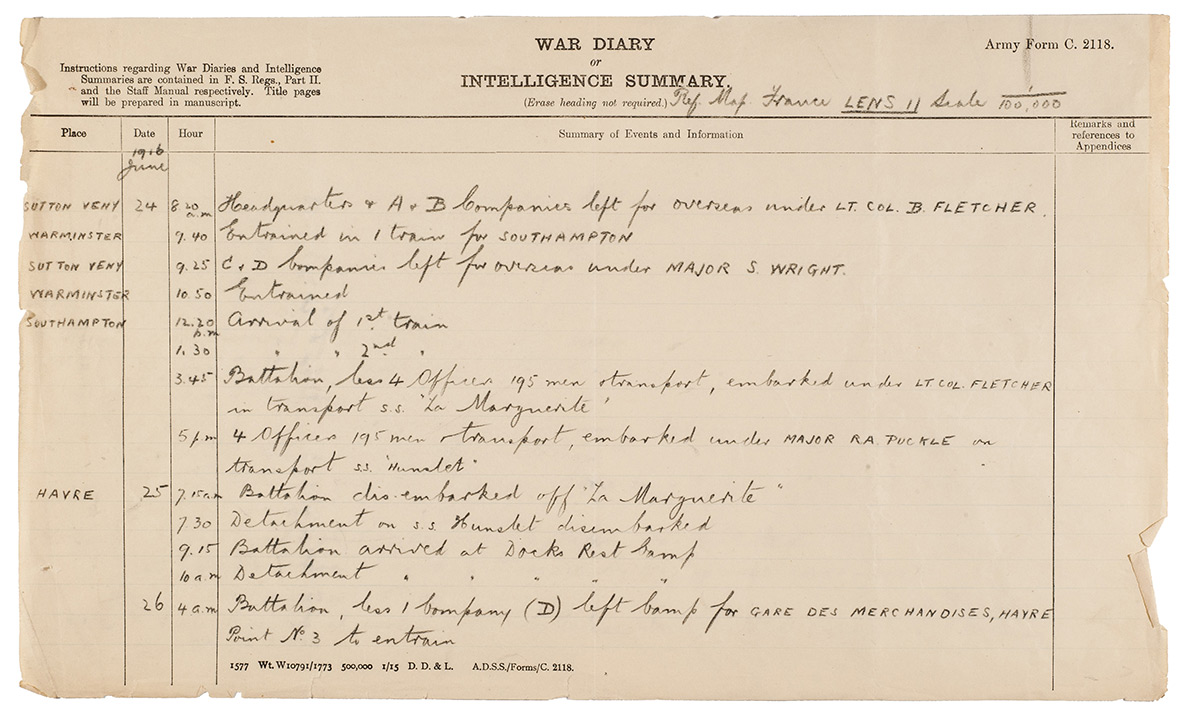 WAR DIARY
or
INTELLIGENCE SUMMARY.
(Erase heading not required.) Ref. Map. France LENS 11 Scale 1/100,000
Army Form C. 2118.
Instructions regarding War Diaries and Intelligence
Summaries are contained in F. S. Regs., Part II.
and the Staff Manual respectively. Title pages
will be prepared in manuscript.
Place Date Hour Summary of Events and Information Remarks and references to Appendices
1916
June
SUTTON VENY 24 8 20 a.m Headquarters & A & B Companies left for overseas under LT. COL. B. FLETCHER.
WARMINSTER 9.40 Entrained in 1 train for SOUTHAMPTON
SUTTON VENY 9.25 C & D Companies left for overseas under MAJOR S. WRIGHT.
WARMINSTER 10.50 Entrained
SOUTHAMPTON 12.20 p.m Arrival of 1st train
1.30 " " 2nd "
3.45 Battalion, less 4 Officers 195 men & transport, embarked under LT. COL. FLETCHER
in transport s.s. 'La Marguerite'
5 p m 4 Officers 195 men & transport, embarked under MAJOR R.A. PUCKLE on
transport s.s. "Hunslet"
HAVRE 25 7.15 a.m Battalion dis-embarked off "La Marguerite"
7.30 Detachment on s.s. Hunslet disembarked
9.15 Battalion arrived at Docks Rest Camp
10 a.m Detachment " " " " "
26 4 a.m Battalion, less 1 Company (D) left Camp for GARE DES MERCHANDISES, HAVRE
Point No. 3 to entrain
1577 Wt. W10791/1773 500,000 1/15 D. D. & L. A.D.S.S./Forms/C. 2118.